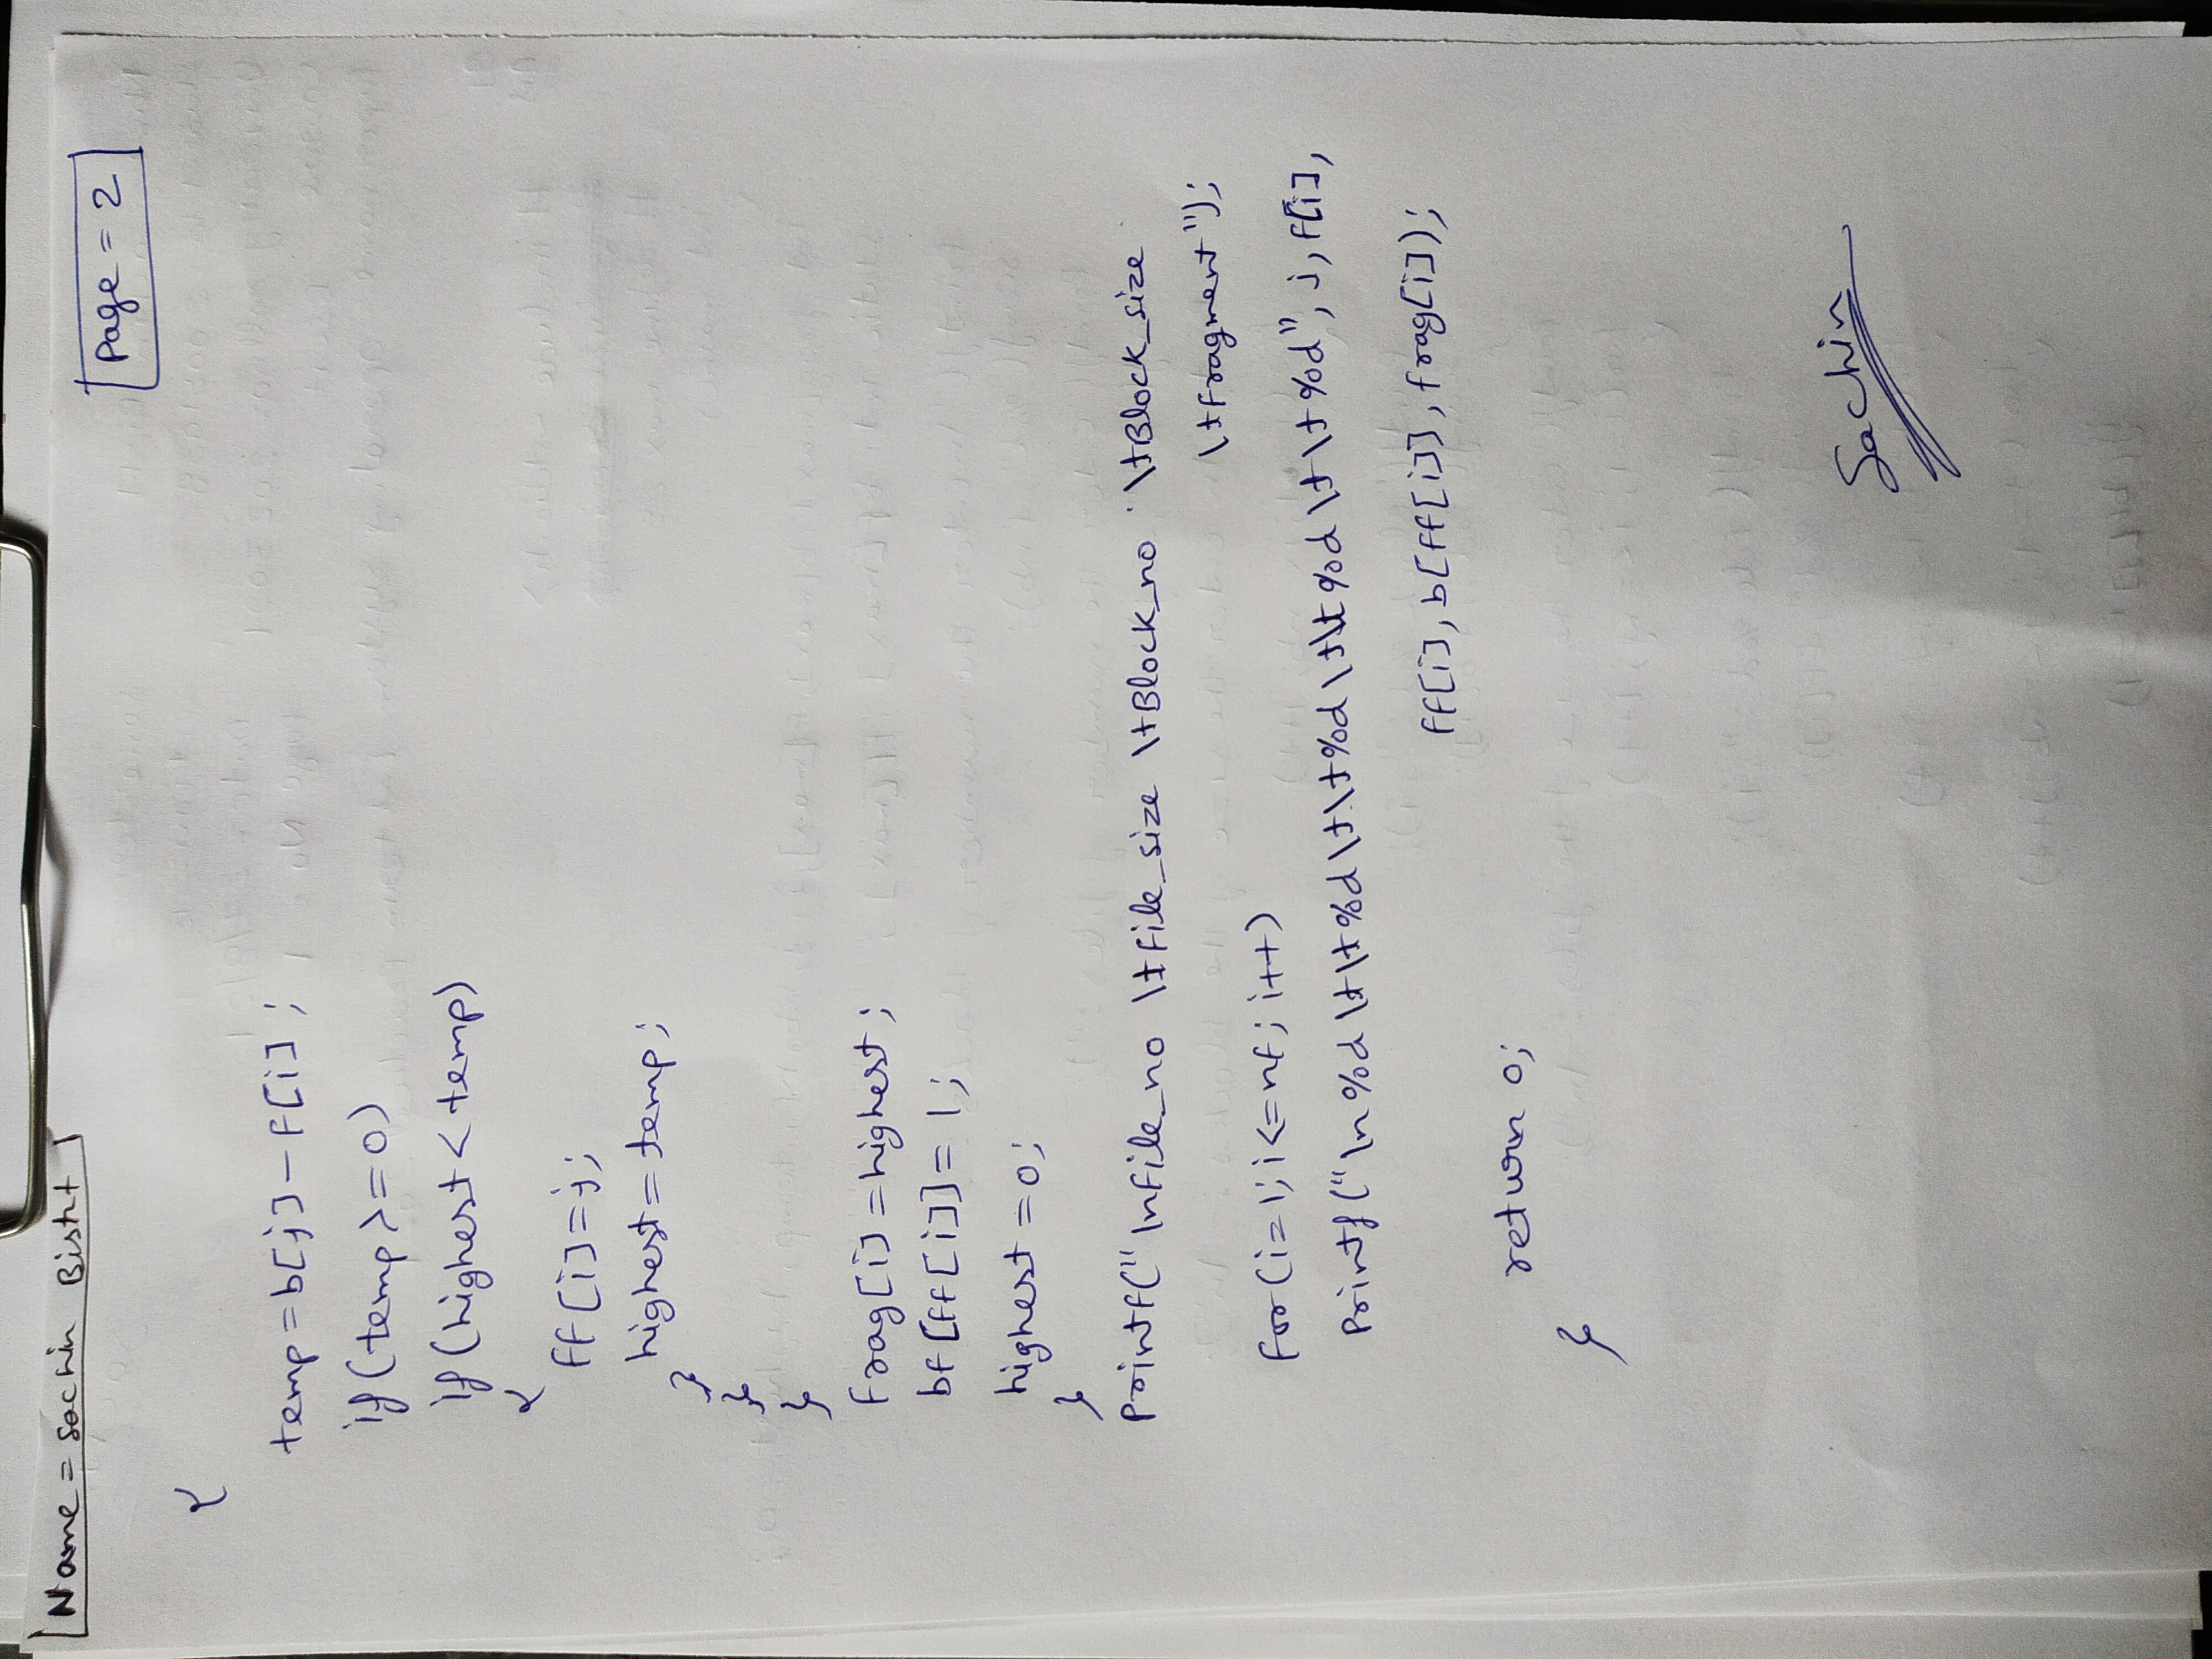 Name = Sachin Bisht
Page = 2
{
temp=b[j]-f[i];
if(temp>=0)
if(highest<temp)
{
ff[i]=j;
highest=temp;
}
}
}
frag[i]=highest;
bf[ff[i]]=1;
highest=0;
}
Printf("\nFile_no \tFile_size \tBlock_no \tBlock_size
\tFragment");
for(i=1;i<=nf;i++)
Printf("\n%d\t\t%d\t\t%d\t\t%d\t\t%d",j,f[i],
ff[i],b[ff[i]],frag[i]);
return 0;
}
Sachin